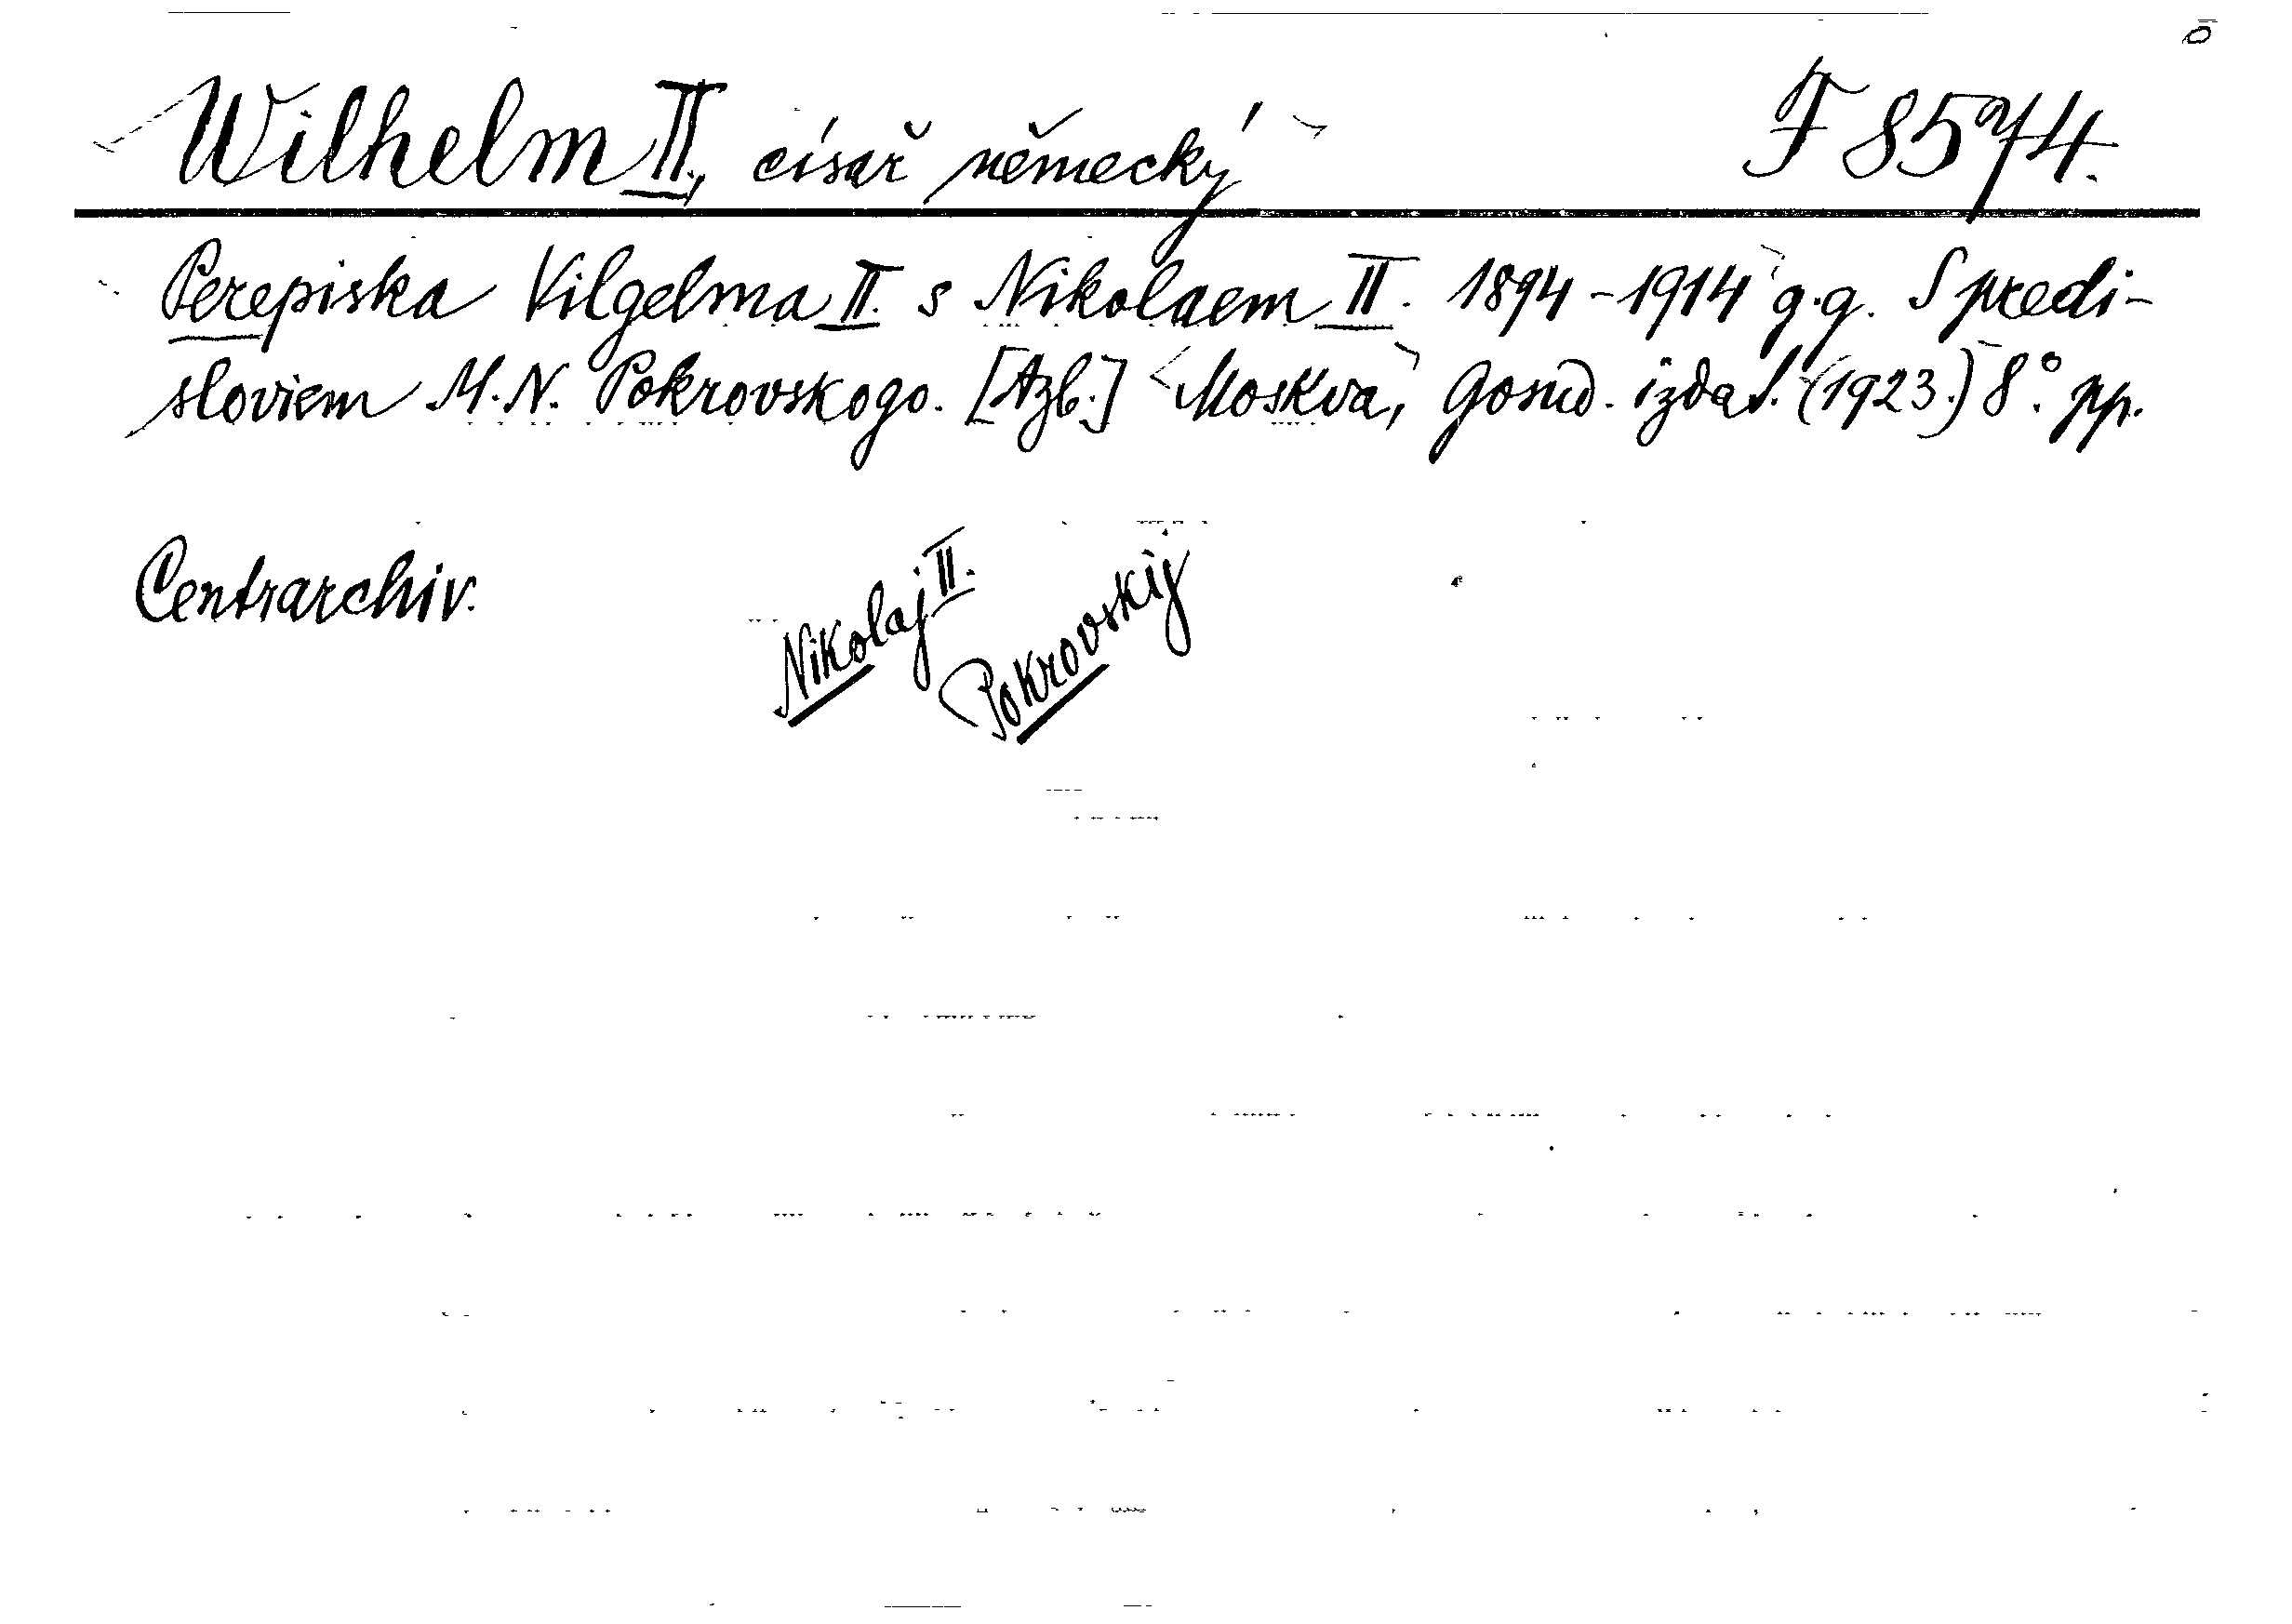 Wilhelm II., císař německý
F 8574.
Perepiska Vilgelma II. s Nikolaem II. 1894-1914 g.g. S predi-
sloviem M. N. Pokrovskogo. [Azb.] Moskva, Gosud. izdat. (1923.) 8°. pp.
Centrarchiv.
Nikolaj II.
Pokrovskij